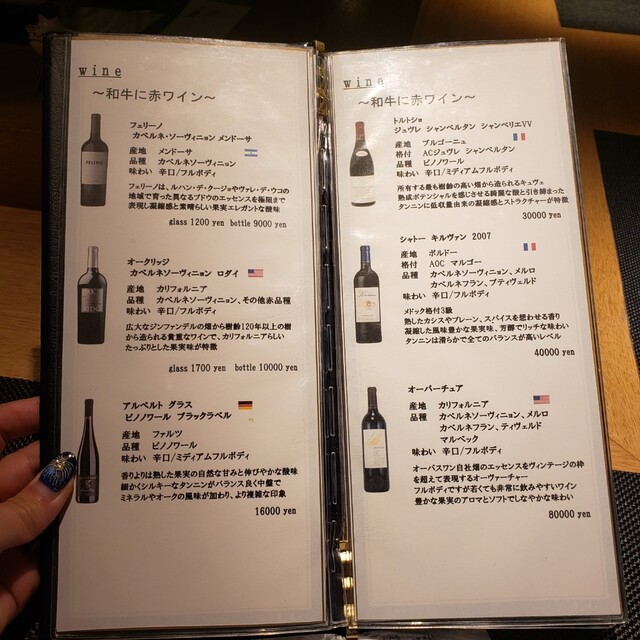 wine
～和牛に赤ワイン～
フェリーノ
カベルネ・ソーヴィニョン メンドーサ
産地 メンドーサ
品種 カベルネソーヴィニョン
味わい 辛口/フルボディ
フェリーノは、ルハン・デ・クージョやヴァレ・デ・ウコの
地域で育った異なるブドウのエッセンスを極限まで
表現し凝縮感と素晴らしい果実エレガントな酸味
glass 1200 yen bottle 9000 yen
オークリッジ
カベルネソーヴィニョン ロダイ
産地 カリフォルニア
品種 カベルネソーヴィニョン、その他赤品種
味わい 辛口/フルボディ
広大なジンファンデルの畑から樹齢120年以上の樹
から造られる貴重なワインで、カリフォルニアらしい
たっぷりとした果実味が特徴
glass 1700 yen bottle 10000 yen
アルベルト グラス
ピノノワール ブラックラベル
産地 ファルツ
品種 ピノノワール
味わい 辛口/ミディアムフルボディ
香りよりは熟した果実の自然な甘みと伸びやかな酸味
細かくシルキーなタンニンがバランス良く中盤で
ミネラルやオークの風味が加わり、より複雑な印象
16000 yen
wine
～和牛に赤ワイン～
トルトショ
ジュヴレ シャンベルタン シャンペリエVV
産地 ブルゴーニュ
格付 ACジュヴレ シャンベルタン
品種 ピノノワール
味わい 辛口/ミディアムフルボディ
所有する最も樹齢の高い畑から造られるキュヴェ
熟成ポテンシャルを感じさせる綺麗な酸と引き締まった
タンニンに低収量由来の凝縮感とストラクチャーが特徴
30000 yen
シャトー キルヴァン 2007
産地 ボルドー
格付 AOC マルゴー
品種 カベルネソーヴィニョン、メルロ
カベルネフラン、プティヴェルド
味わい 辛口/フルボディ
メドック格付3級
熟したカシスやプレーン、スパイスを想わせる香り
凝縮した風味豊かな果実味、芳醇でリッチな味わい
タンニンは滑らかで全てのバランスが高いレベル
40000 yen
オーバーチュア
産地 カリフォルニア
品種 カベルネソーヴィニョン、メルロ
カベルネフラン、ティヴェルド
マルベック
味わい 辛口/フルボディ
オーパスワン自社畑のエッセンスをヴィンテージの枠
を超えて表現するオーヴァーチャー
フルボディですが若くても非常に飲みやすいワイン
豊かな果実のアロマとソフトでしなやかな味わい
80000 yen